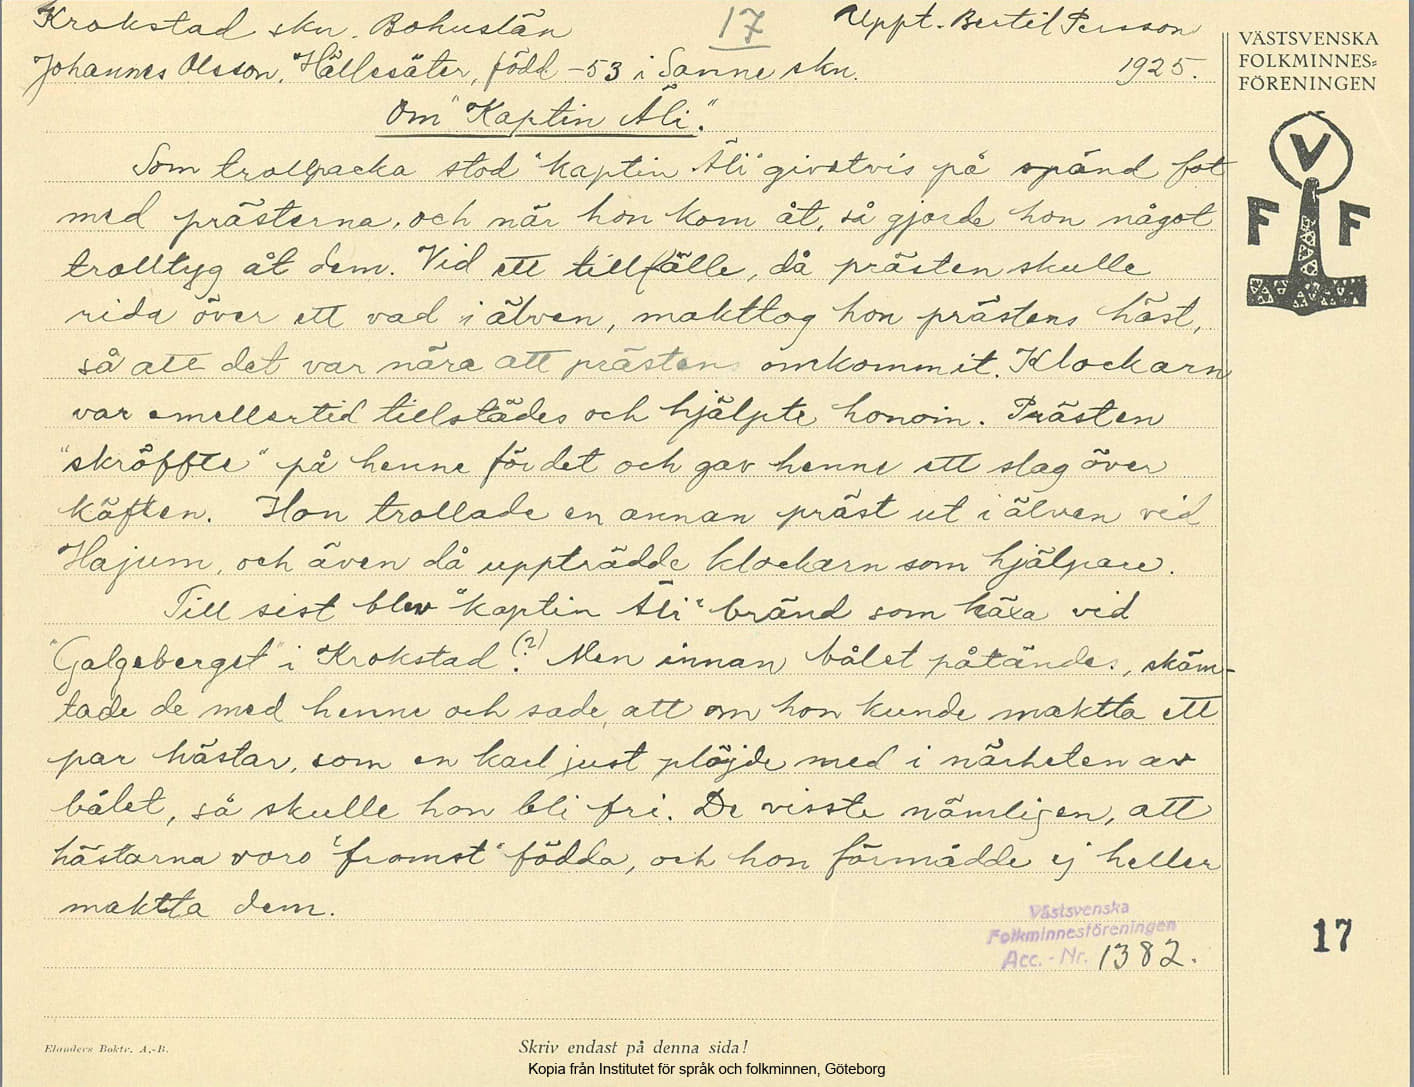 Krokstad skn. Bohuslän
17
Uppt. Bertil Persson
Johannes Olsson, Hällesäter, född -53 i Sanne skn.
1925.
VÄSTSVENSKA
FOLKMINNES=
FÖRENINGEN
V
F F
Om "Kaptin Äli".
Som trollpacka stod "kaptin Äli" givetvis på spänd fot
med prästerna, och när hon kom åt, så gjorde hon något
trolltyg åt dem. Vid ett tillfälle, då prästen skulle
rida över ett vad i älven, makttog hon prästens häst,
så att det var nära att prästen omkommit. Klockarn
var emellertid tillstädes och hjälpte honom. Prästen
"skröffte" på henne för det och gav henne ett slag över
käften. Hon trollade en annan präst ut i älven vid
Hajum, och även då uppträdde klockarn som hjälpare.
Till sist blev "kaptin Äli" bränd som häxa vid
"Galgeberget" i Krokstad (?). Men innan bålet påtändes, skäm-
tade de med henne och sade, att om hon kunde maktta ett
par hästar, som en karl just plöjde med i närheten av
bålet, så skulle hon bli fri. De visste nämligen, att
hästarna voro "fromst" födda, och hon förmådde ej heller
maktta dem.
Västsvenska
Folkminnesföreningen
Acc. - Nr. 1382.
17
Elanders Boktr. A.-B.
Skriv endast på denna sida!
Kopia från Institutet för språk och folkminnen, Göteborg